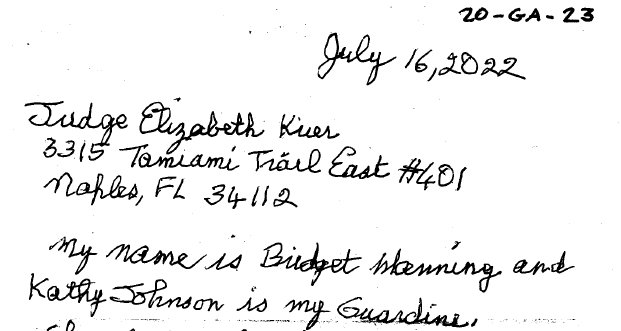 20-GA-23
July 16, 2022
Judge Elizabeth Kier
3315 Tamiami Trail East #401
Naples, FL 34112
My name is Bridget and
Kathy Johnson is my Guardine.